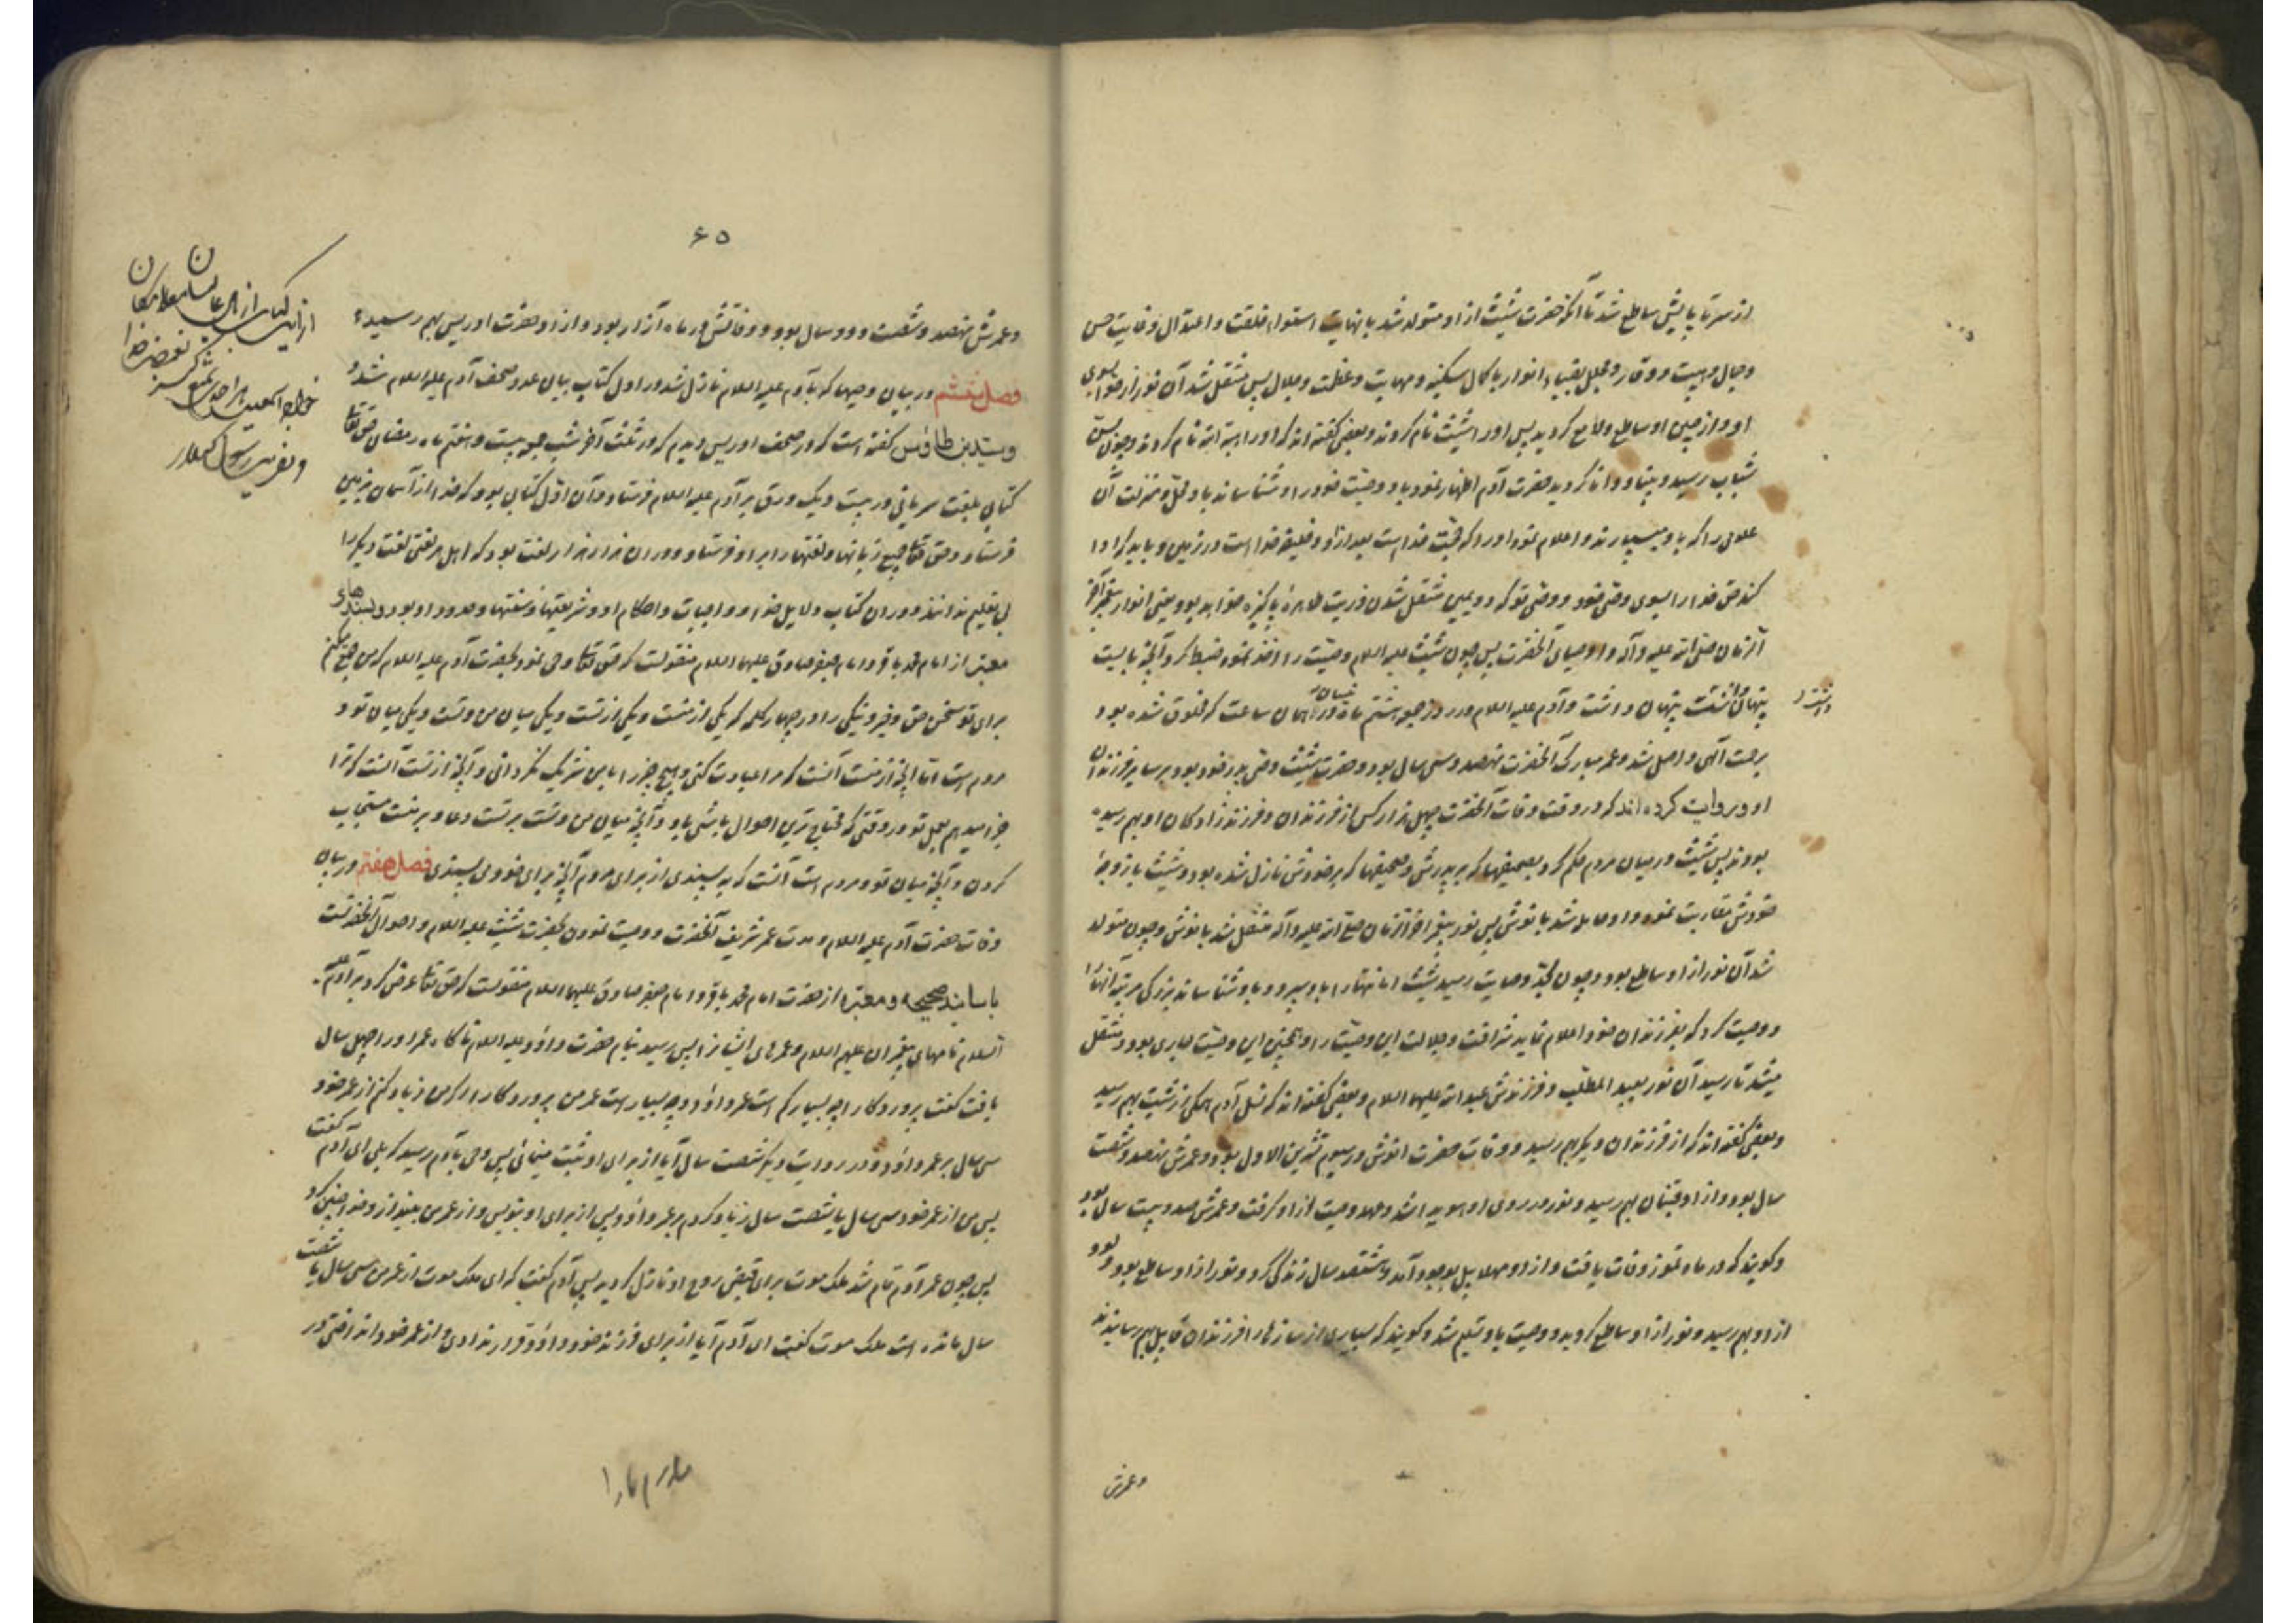 از سر تا پایش ساطع شد تا آنکه حضرت شیث از او متولد شد با نهایت استواء خلقت و اعتدال و غایت حسن
و جمال و هیبت و وقار و مجلل بضیاء انوار با کمال سکینه و مهابت و عظمت و جلال پس منتقل شد آن نور از حوا بسوی
او و از جبین او ساطع و لامع گردید پس او را شیث نام کردند و بعضی گفته اند که او را هبة الله نام کردند و چون بسن
شباب رسید و بینا و دانا گردید حضرت آدم اظهار نمود باو وصیت خود را و شناساند باو محل و منزلت آن
علومی را که باو میسپارند و اعلام نمود او را که حجت خداست بعد از او و خلیفه خداست در زمین و باید که ادا
کند حق خدا را بسوی وصی خود و وصی تو که دویمین منتقل شدن ذریت طاهرهٔ پاکیزه خواهد بود یعنی انوار پیغمبر آخر
الزمان صلی الله علیه و آله و اوصیای آنحضرت پس چون شیث علیه السلام وصیت را اخذ نمود ضبط کرد و آنچه بایست
پنهان داشت پنهان داشت و آدم علیه السلام در روز جمعه ششم ماه نیسان در همان ساعت که مخلوق شده بود
برحمت الهی واصل شد و عمر مبارک آنحضرت نهصد و سی سال بود و حضرت شیث وصی پدر خود بود بر سایر فرزندان
او و روایت کرده اند که در وقت وفات آنحضرت چهل هزار کس از فرزندان و فرزند زادگان او بهم رسیده
بودند پس شیث در میان مردم حکم کرد بصحیفها که بر پدرش و صحیفها که بر خودش نازل شده بود و شیث با زوجهٔ
خودش مقاربت نمود و او حامله شد بانوش پس نور پیغمبر آخر الزمان صلی الله علیه و آله منتقل شد بانوش و چون متولد
شد آن نور از او ساطع بود و چون بحد وصایت رسید شیث امانتها را باو سپرد و باو شناساند بزرگی مرتبه آنها را
و وصیت کرد که بفرزندان خود اعلام نماید شرافت و جلالت این وصیت را و همچنین این وصیت جاری بود و منتقل
میشد تا رسید آن نور بعبد المطلب و فرزندش عبد الله علیهما السلام و بعضی گفته اند که نسل آدم همگی از شیث بهم رسید
و بعضی گفته اند که از فرزندان دیگر بهم رسید و وفات حضرت انوش در سیوم تشرین الاول بود و عمرش نهصد و شصت
سال بود و از او قینان بهم رسید و نور در روی او هویدا شد و عهد وصیت از او گرفت و عمرش صد و بیست سال بود
و گویند که در ماه تموز وفات یافت و از او مهلائیل بوجود آمد و هشتصد سال زندگی کرد و نور از او ساطع بود و بود
از او بهم رسید و نور از او ساطع گردید و وصیت باو تسلیم شد و گویند که بسیاری از سازها را فرزندان قابیل بهم رسانیدند
و عمرش
۶۵
و عمرش نهصد و شصت و دو سال بود و وفاتش در ماه آزار بود و از او حضرت ادریس بهم رسید
فصل ششم در بیان وحیها که بآدم علیه السلام نازل شد در اول کتاب بیان عدد صحف آدم علیه السلام شد و
و سید بن طاوس گفته است که در صحف ادریس دیدم که در ثلث آخر شب جمعه بیست و هفتم ماه رمضان حق تعالی
کتابی بلغت سریانی در بیست و یک ورق بر آدم علیه السلام فرستاد و آن اول کتابی بود که خدا از آسمان بزمین
فرستاد و حق تعالی جمیع زبانها و لغتها را بر او فرستاد و در آن هزار هزار لغت بود که اهل هر لغتی لغت دیگر را
بی تعلیم ندانند و در آن کتاب دلایل خدا و واجبات و احکام او و شریعتها و سنتها و حدود او بود و بسندهای
معتبر از امام محمد باقر و امام جعفر صادق علیهما السلام منقولست که حق تعالی وحی نمود بحضرت آدم علیه السلام که من جمع میکنم
برای تو سخن حق و خیر و نیکی را در چهار کلمه که یکی از منست و یکی از تست و یکی میان من و تست و یکی میان تو و
مردم است اما آنچه از منست آنست که مرا عبادت کنی و هیچ چیز را با من شریک نگردانی و آنچه از تست آنست که ترا
جزا میدهم بعمل تو در وقتی که محتاج ترین احوال باشی باو و آنچه میان من و تست بر تست دعا و بر منست مستجاب
کردن و آنچه میان تو و مردم است آنست که بپسندی از برای مردم آنچه برای خود می پسندی فصل هفتم در بیان
وفات حضرت آدم علیه السلام و مدت عمر شریف آنحضرت و وصیت نمودن بحضرت شیث علیه السلام و احوال آنحضرتست
باسانید صحیحه و معتبره از حضرت امام محمد باقر و امام جعفر صادق علیهما السلام منقولست که حق تعالی عرض کرد بر آدم علیه
السلام نامهای پیغمبران علیهم السلام و عمرهای ایشان را پس رسید بنام حضرت داود علیه السلام ناگاه عمر او را چهل سال
یافت گفت پروردگارا چه بسیار کم است عمر داود و چه بسیار است عمر من پروردگارا اگر من زیاد کنم از عمر خود
سی سال بر عمر داود و در روایت دیگر شصت سال آیا از برای او ثبت مینمائی پس وحی بآدم رسید که بلی ای آدم گفت
پس من از عمر خود سی سال یا شصت سال زیاد کردم بر عمر داود پس از برای او بنویس و از عمر من بینداز و خدا چنین کرد
پس چون عمر آدم تمام شد ملک موت برای قبض روح او نازل گردید پس آدم گفت که ای ملک موت از عمر من سی سال یا شصت
سال مانده است ملک موت گفت ای آدم آیا از برای فرزند خود داود قرار ندادی و از عمر خود انداختی در